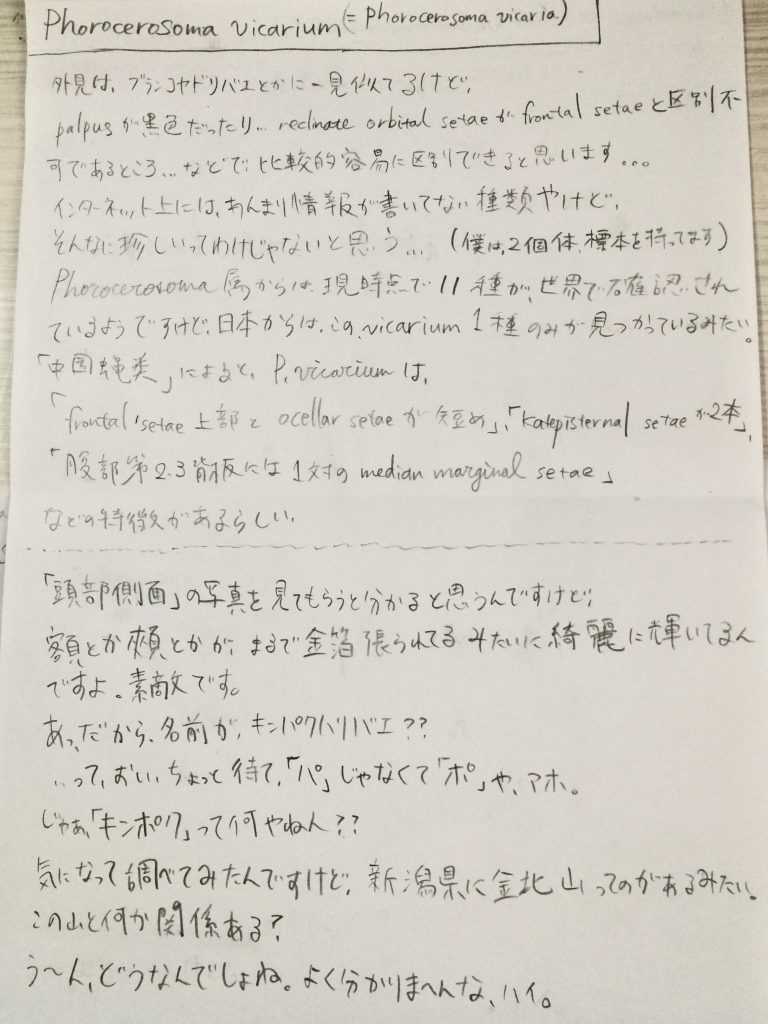 Phorocerosoma vicarium (= Phorocerosoma vicaria)
外見は、ブランコヤドリバエとかに一見似てるけど、
palpusが黒色だったり… reclinate orbital setaeがfrontal setaeと区別不
可であるところ…などで、比較的容易に区別できると思います…。
インターネット上には、あんまり情報が書いてない種類やけど、
そんなに珍しいってわけじゃないと思う… (僕は、2個体、標本を持ってます)
Phorocerosoma属からは、現時点で11種が、世界で確認され
ているようですけど、日本からは、この、vicarium 1種のみが見つかっているみたい。
「中国蝿類」によると、P. vicariumは、
「frontal setae上部とocellar setaeが短め」、「katepisternal setaeが2本」、
「腹部第2.3背板には1対のmedian marginal setae」
などの特徴があるらしい、
「頭部側面」の写真を見てもらうと分かると思うんですけど、
額とか頰とかが、まるで金箔張られてるみたいに綺麗に輝いてるん
ですよ。素敵です。
あっ、だから、名前が、キンパクハリバエ??
…って、おい、ちょっと待て、「パ」じゃなくて「ポ」や、アホ。
じゃあ、「キンポク」って何やねん??
気になって調べてみたんですけど、新潟県に金北山ってのがあるみたい。
この山と何か関係ある?
う〜ん、どうなんでしょね。よく分かりまへんな、ハイ。